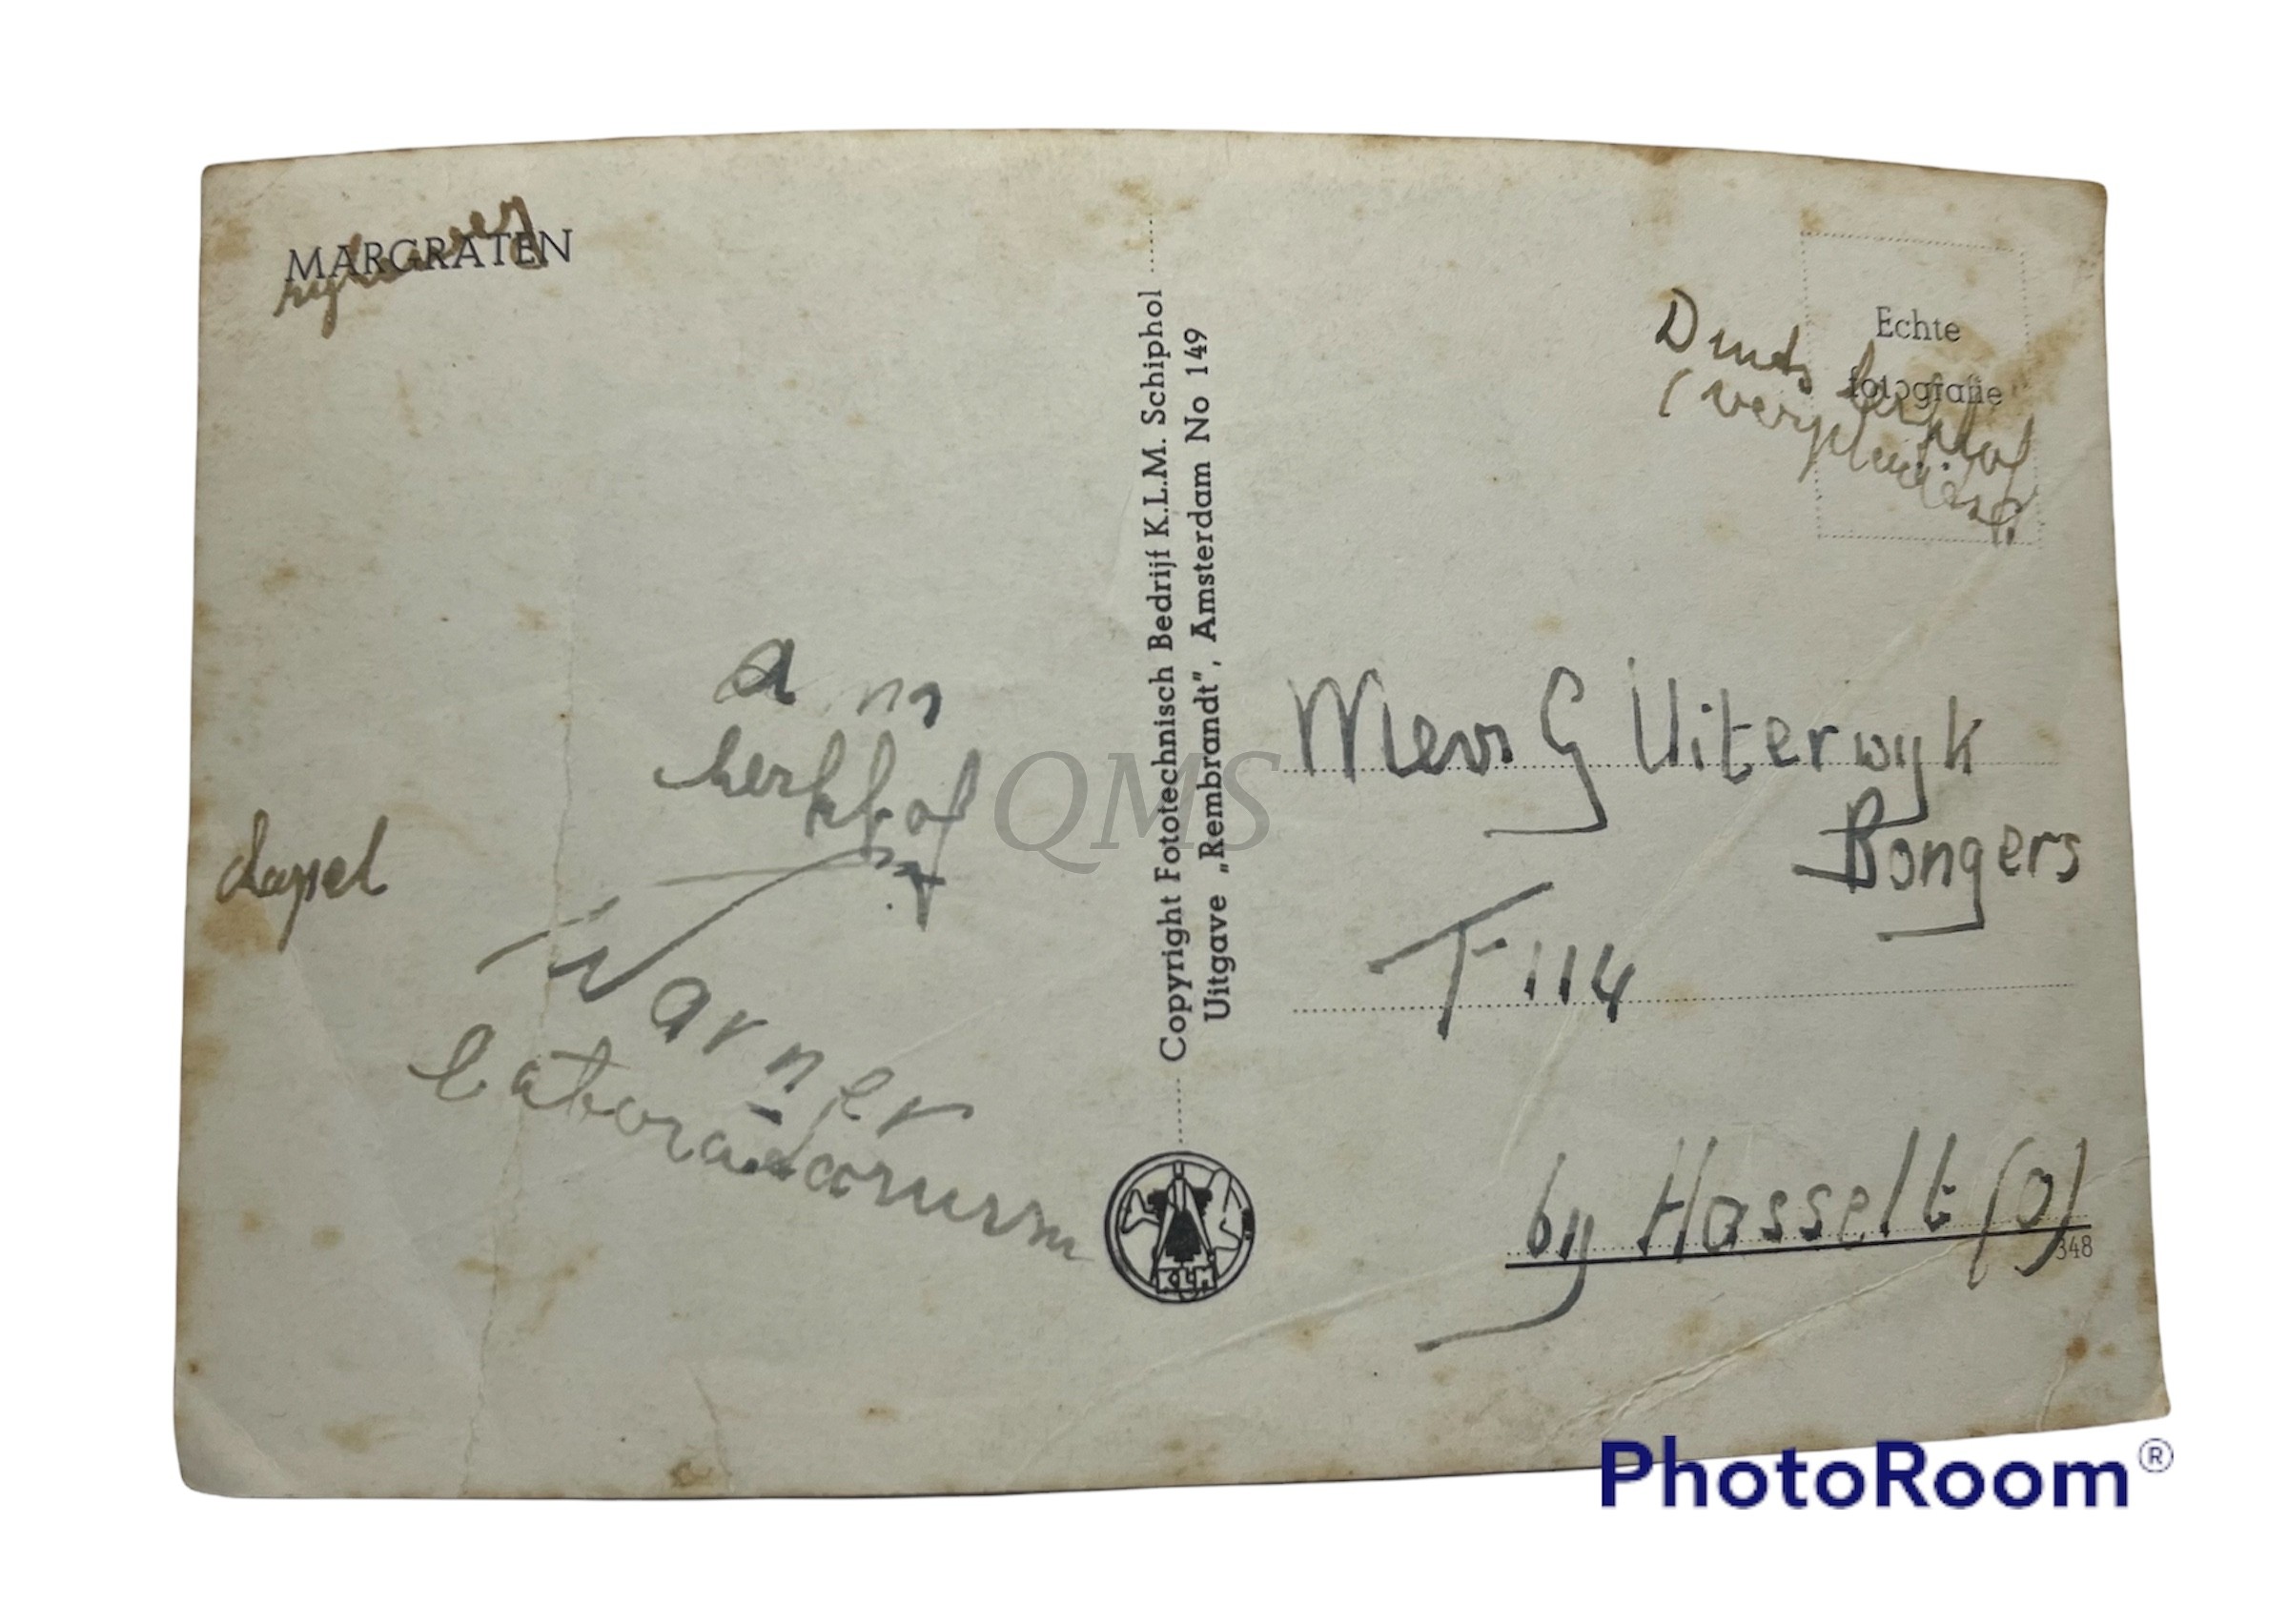 MARGRATEN
Echte
fotografie
Duits kerkhof
a m
kerkhof
kapel
Warner
Copyright Fototechnisch Bedrijf K.L.M. Schiphol
Uitgave „Rembrandt", Amsterdam No 149
QMS
Mevr G Uiterwyk
Bongers
T 114
by Hasselt (O)
348
PhotoRoom®